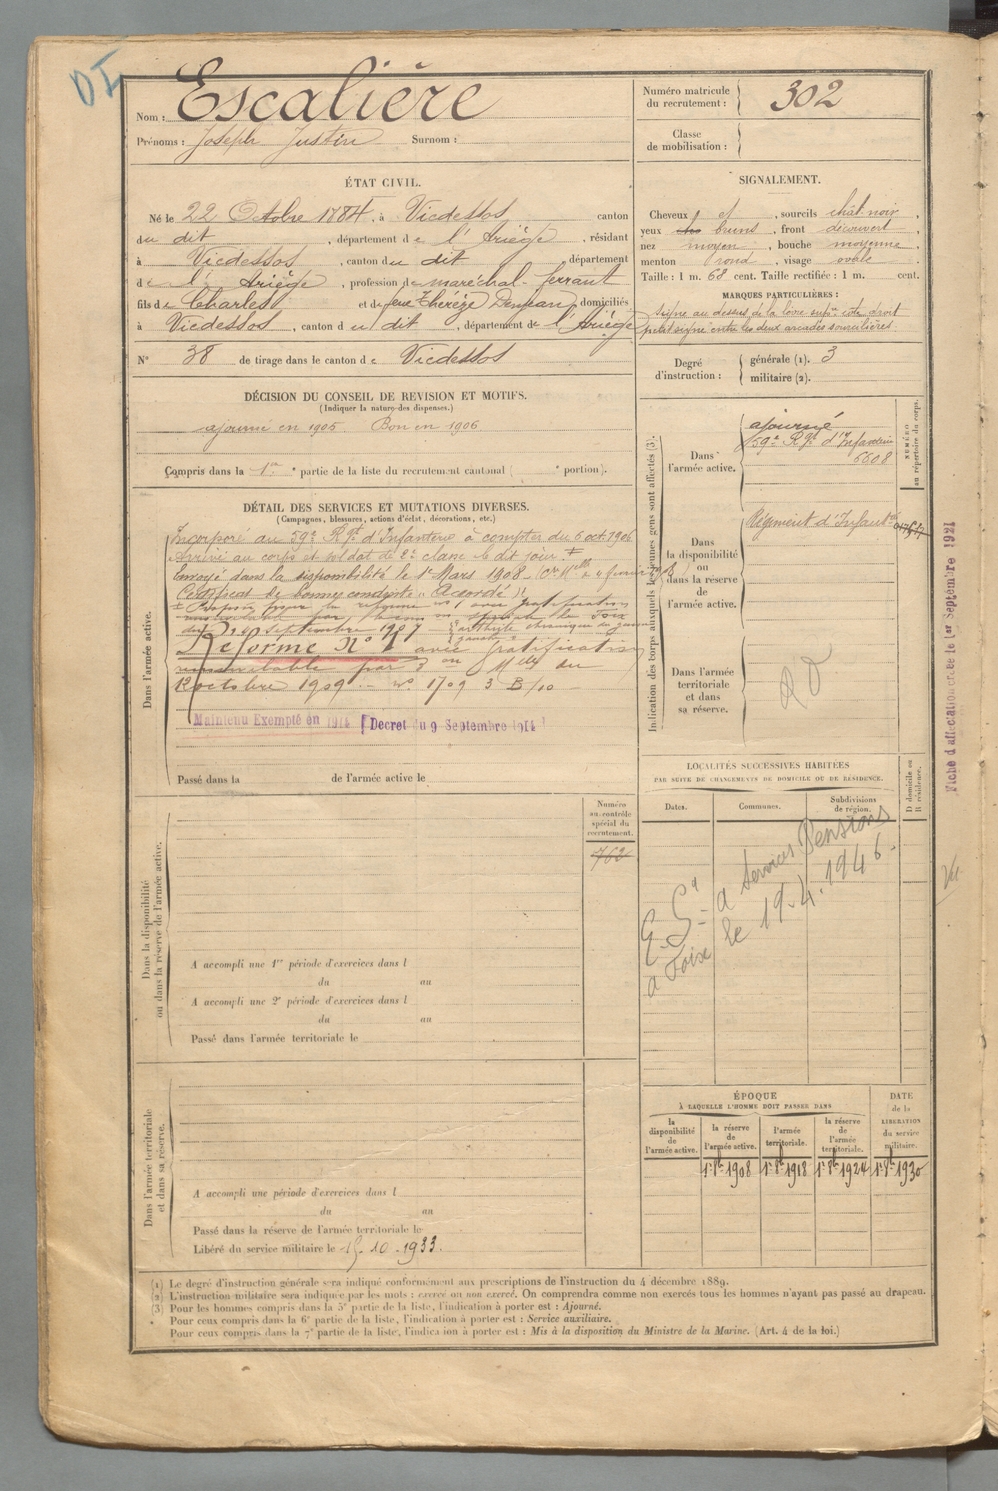 DI
Nom : Escalière
Prénoms : Joseph Justin Surnom :
Numéro matricule du recrutement : 302
Classe de mobilisation :
ÉTAT CIVIL.
Né le 22 Octobre 1884, à Vicdessos, canton
du dit, département de l'Ariège, résidant
à Vicdessos, canton du dit, département
de l'Ariège, profession de maréchal-ferrant
fils de Charles et de feue Thérèze, domiciliés
à Vicdessos, canton du dit, département de l'Ariège
N° 38 de tirage dans le canton de Vicdessos
SIGNALEMENT.
Cheveux et, sourcils chât. noir,
yeux bruns, front découvert,
nez moyen, bouche moyenne,
menton rond, visage ovale.
Taille : 1 m. 68 cent. Taille rectifiée : 1 m. cent.
MARQUES PARTICULIÈRES :
signe au dessus de la lèvre supre côté droit
petit signe entre les deux arcades sourcilières.
Degré d'instruction : générale (1). 3
militaire (2).
DÉCISION DU CONSEIL DE REVISION ET MOTIFS.
(Indiquer la nature des dispenses.)
ajourné en 1905 Bon en 1906
Compris dans la 1re partie de la liste du recrutement cantonal ( e portion).
DÉTAIL DES SERVICES ET MUTATIONS DIVERSES.
(Campagnes, blessures, actions d'éclat, décorations, etc.)
Dans l'armée active.
Incorporé au 59e Rgt d'Infanterie à compter du 6 oct 1906
Arrivé au corps et soldat de 2e classe le dit jour. ‡
Envoyé dans la disponibilité le 1er Mars 1908
Certificat de bonne conduite "Accordé"
‡ Proposé pour la réforme n° 1 avec gratification
Septembre 1907 arthrite chronique du genou
gauche
Réforme N° 1 avec gratification
renouvelable par Mlle du
12 octobre 1909 n° 1709 3 B/10
Maintenu Exempté en 1914 [Decret du 9 Septembre 1914]
Passé dans la de l'armée active le
Indication des corps auxquels les jeunes gens sont affectés (3).
NUMÉRO au répertoire du corps.
Dans l'armée active.
ajourné
59e Rgt d'Infanterie
6608
Dans la disponibilité ou dans la réserve de l'armée active.
Régiment d'Infantie
Dans l'armée territoriale et dans sa réserve.
LOCALITÉS SUCCESSIVES HABITÉES
PAR SUITE DE CHANGEMENTS DE DOMICILE OU DE RÉSIDENCE.
Dates. Communes. Subdivisions de région. D domicile ou R résidence.
a Services Pensions
a Foix le 19.4.1946.
Fiche d'affectation créée le 1er Septembre 1921
Dans la disponibilité ou dans la réserve de l'armée active.
Numéro au contrôle spécial du recrutement.
762
A accompli une 1re période d'exercices dans l
du au
A accompli une 2e période d'exercices dans l
du au
Passé dans l'armée territoriale le
Dans l'armée territoriale et dans sa réserve.
A accompli une période d'exercices dans l
du au
Passé dans la réserve de l'armée territoriale le
Libéré du service militaire le 15.10.1933.
ÉPOQUE
À LAQUELLE L'HOMME DOIT PASSER DANS
la disponibilité de l'armée active.
la réserve de l'armée active.
l'armée territoriale.
la réserve de l'armée territoriale.
DATE de la LIBÉRATION du service militaire.
1er 8bre 1908 1er 8bre 1918 1er 8bre 1924 1er 8bre 1930
(1) Le degré d'instruction générale sera indiqué conformément aux prescriptions de l'instruction du 4 décembre 1889.
(2) L'instruction militaire sera indiquée par les mots : exercé ou non exercé. On comprendra comme non exercés tous les hommes n'ayant pas passé au drapeau.
(3) Pour les hommes compris dans la 5e partie de la liste, l'indication à porter est : Ajourné.
Pour ceux compris dans la 6e partie de la liste, l'indication à porter est : Service auxiliaire.
Pour ceux compris dans la 7e partie de la liste, l'indication à porter est : Mis à la disposition du Ministre de la Marine. (Art. 4 de la loi.)